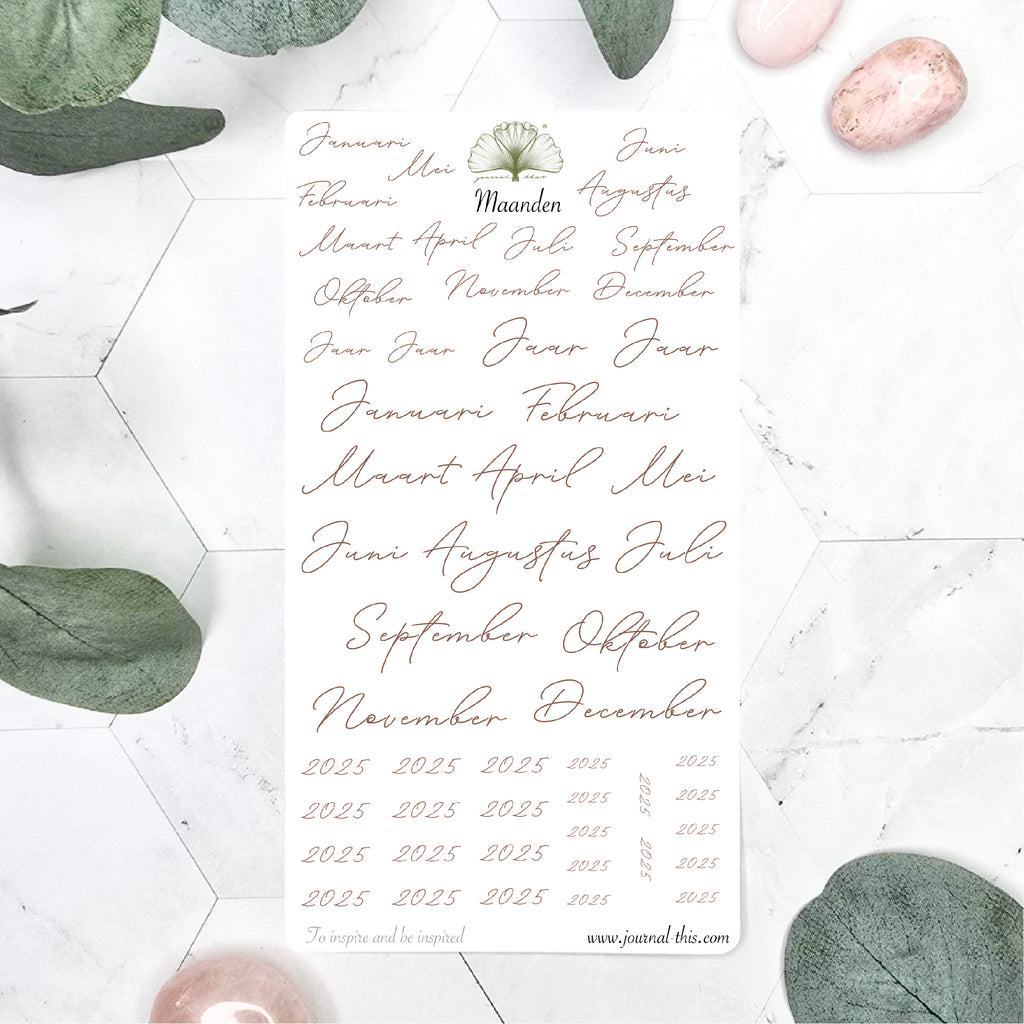 Januari
Mei
Juni
journal this
Februari
Maanden
Augustus
Maart April Juli September
Oktober November December
Jaar Jaar Jaar Jaar
Januari Februari
Maart April Mei
Juni Augustus Juli
September Oktober
November December
2025 2025 2025 2025 2025
2025 2025 2025 2025 2025 2025
2025 2025
2025 2025 2025 2025 2025 2025
2025 2025 2025 2025 2025
To inspire and be inspired www.journal-this.com